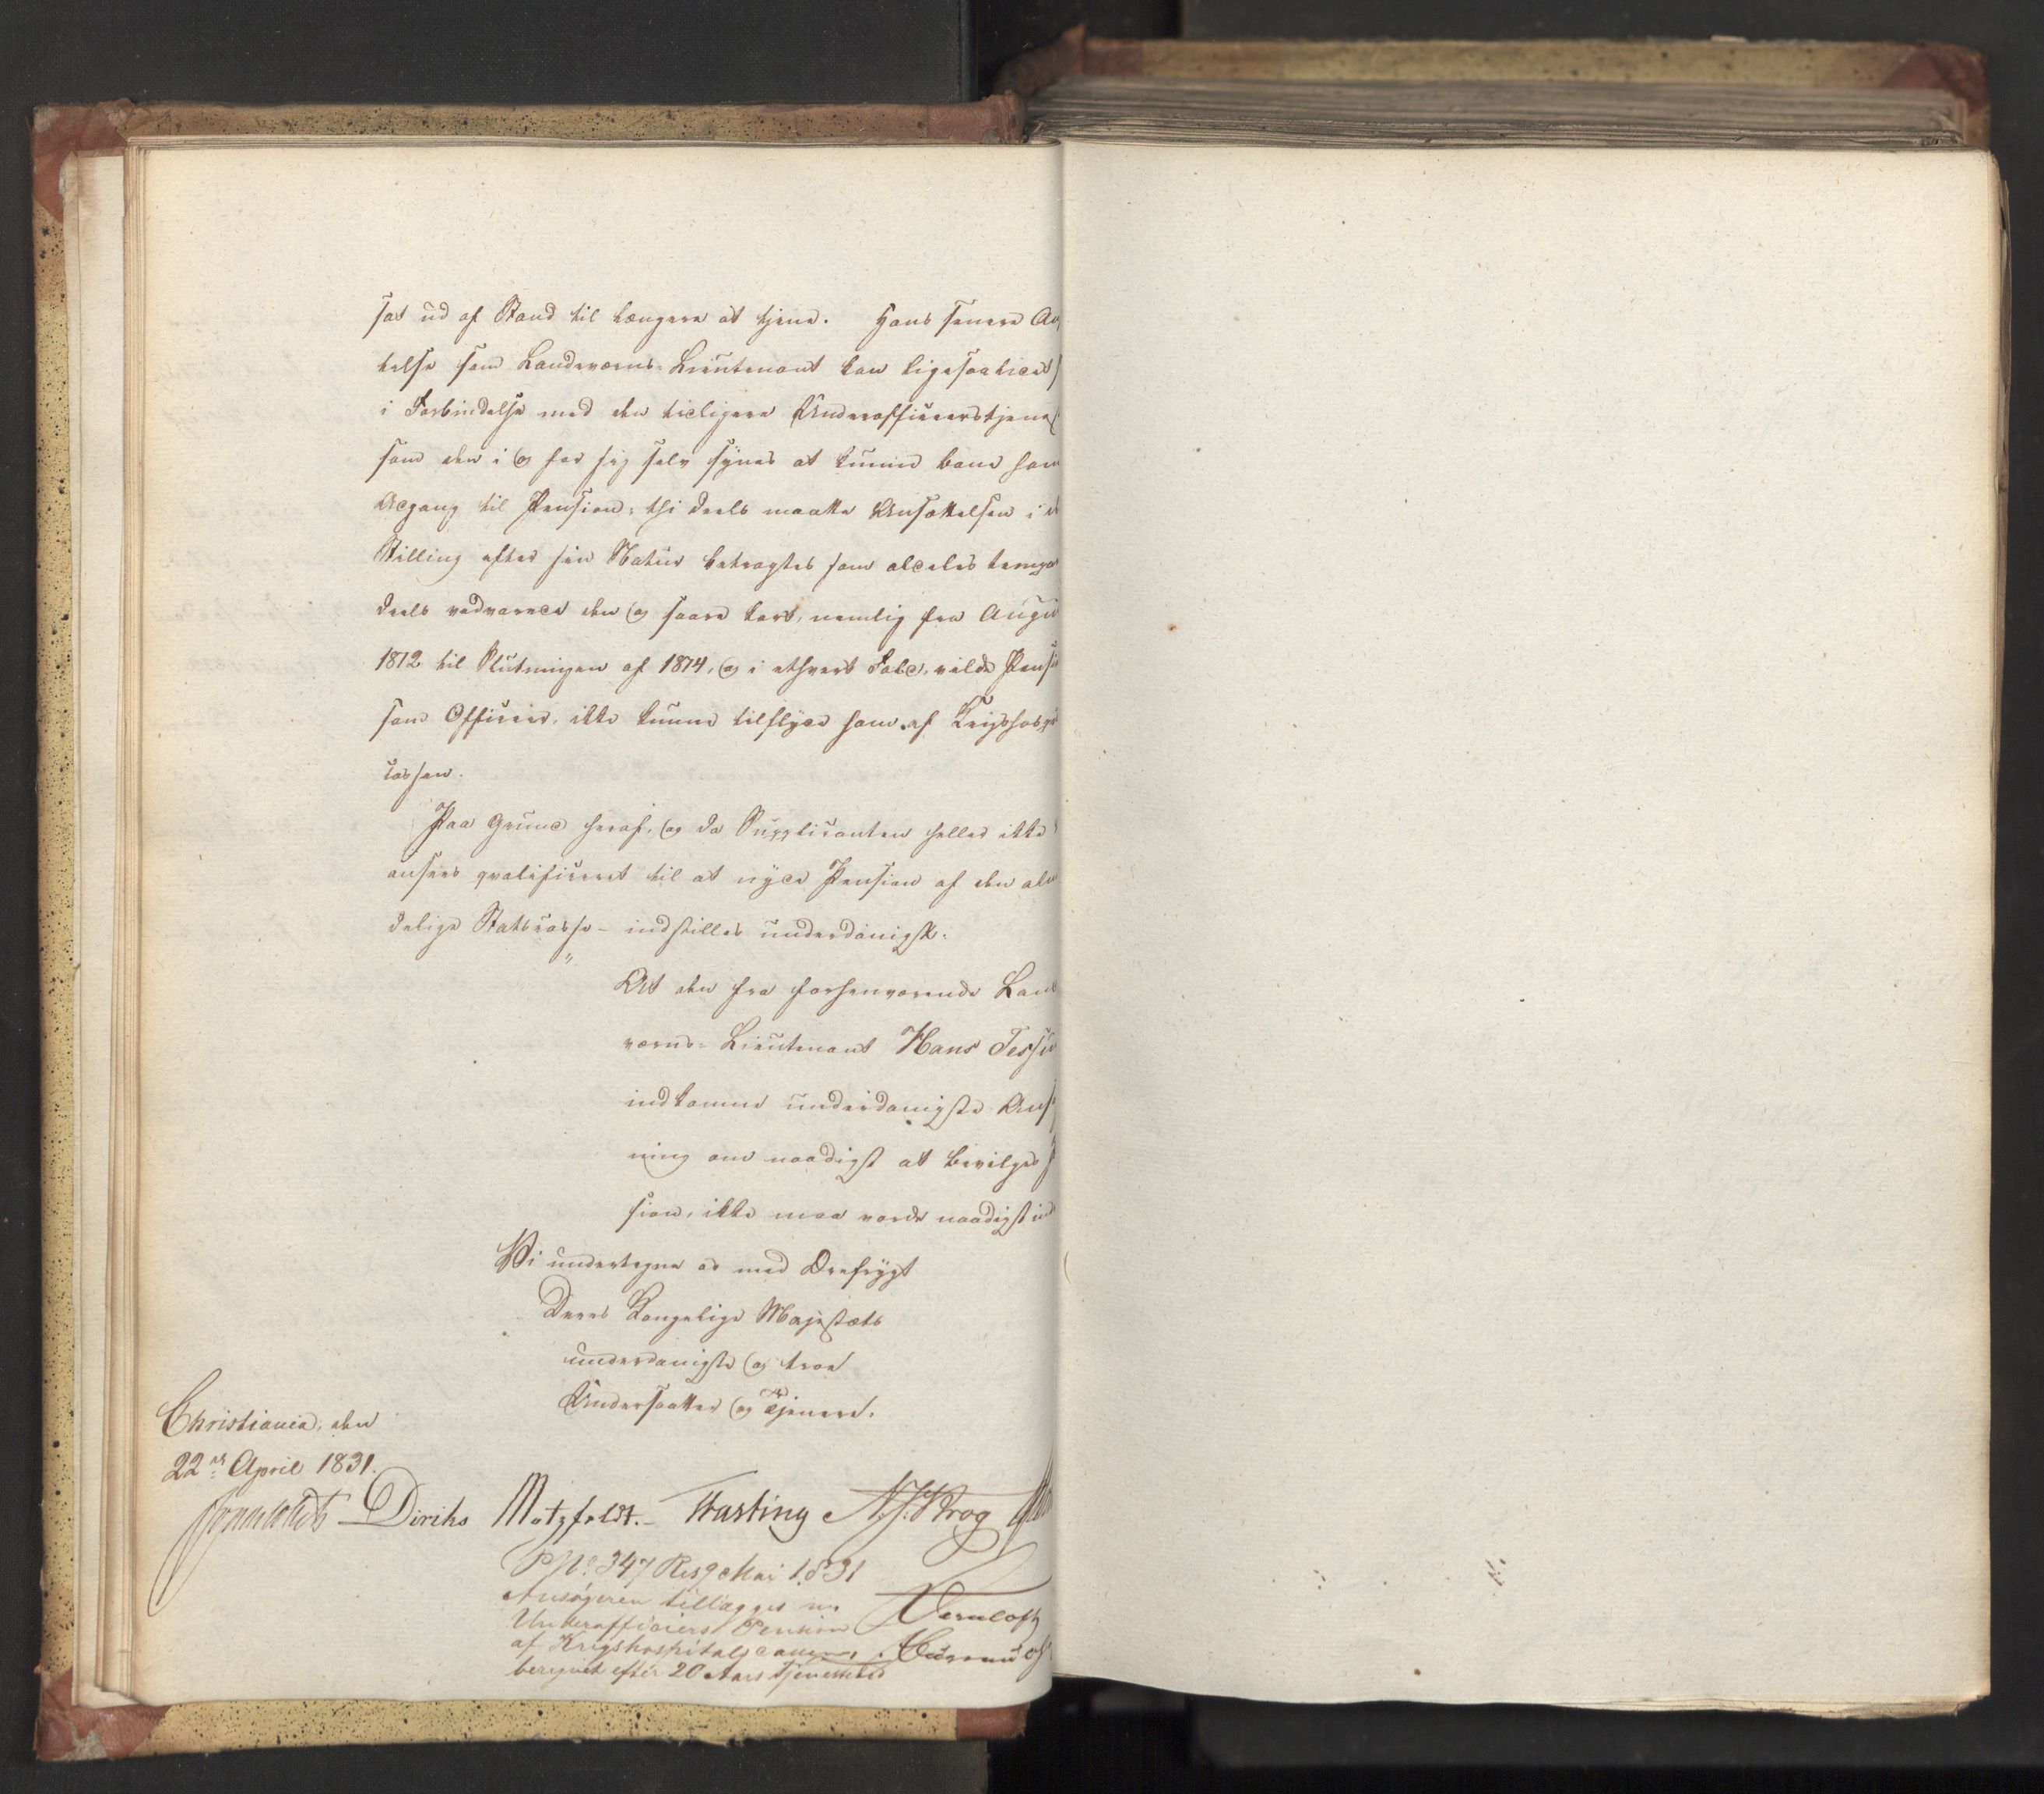 sat ud af Stand til længere at tjene. Hans senere An
telse som Landeværns-Lieutenant kan ligesaalidet
i Forbindelse med den tidligere Underofficeerstjenes
som den i og for sig selv synes at kunne bane ham
Adgang til Pension; thi deels maatte Ansættelsen i d
Stilling efter sin Natur betragtes som aldeles tempo
deels vedvarede den og saare kort, nemlig fra Augu
1812 til Slutningen af 1814, og i ethvert Fald, vilde Pensi
som Officeer, ikke kunne tilflyde ham af Krigshospi
cassen.
Paa Grund heraf, og da Supplicanten heller ikke
ansees qvalificeret til at nyde Pension af den alm
delige Statscasse – indstilles underdanigst:
At den fra forhenværende Land
værns-Lieutenant Hans Tessie
indkomne underdanigste Ans
ning om naadigst at bevilges P
sion, ikke maa vorde naadigst ind
Vi undertegne os med Ærefrygt
Deres Kongelige Majestæts
underdanigste og troe
Undersaatter og Tjenere.
Christiania, den
22de April 1831.
Diriks Motzfeldt. – Fasting N. J. Krog
P No. 347 Res 9 Mai 1831
Ansøgeren tillægges en
Underofficiers Pension
af Krigshospitalscassen,
beregnet efter 20 Aars Tjenestetid